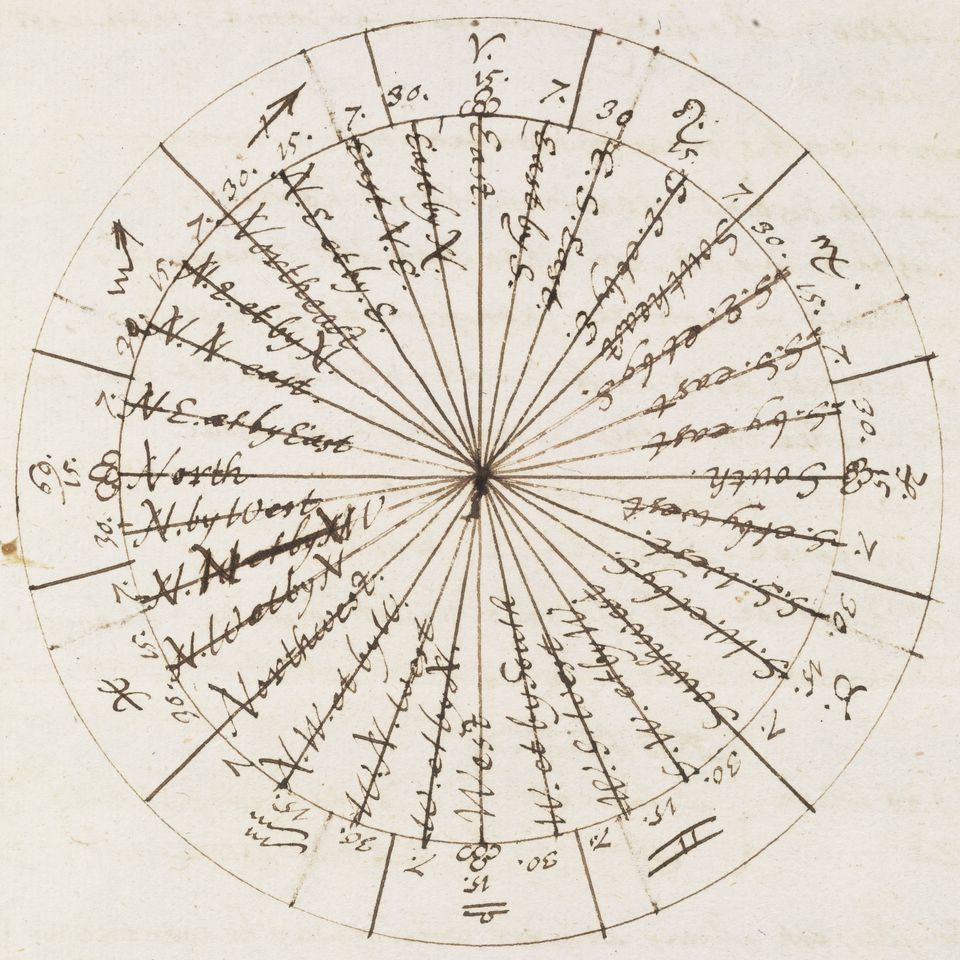 ♈
15.
East.
7.
East by S.
30
E. S. East
♌
15
S. E. et by E.
7.
Southeast
30.
♐.
S. E. et by S.
15.
S. S. east
7.
S. by east
30.
♑.
15
South.
7.
S. et by west
30.
S. S. West.
♉.
15.
S. W. et by S.
7.
Southwest
30.
♊
15.
7.
30.
♎
15.
West
7.
30.
15.
N. W. et by W.
7
Northwest.
30.
♓
15.
N W et by N
7.
30.
N. by West
♋
15.
North
7.
N E. et by East
30
N. N. east.
♏
15.
N E. et by N
7.
Northeast
30.
♐
15.
N E et by E.
7.
East N. E.
30.
East by N